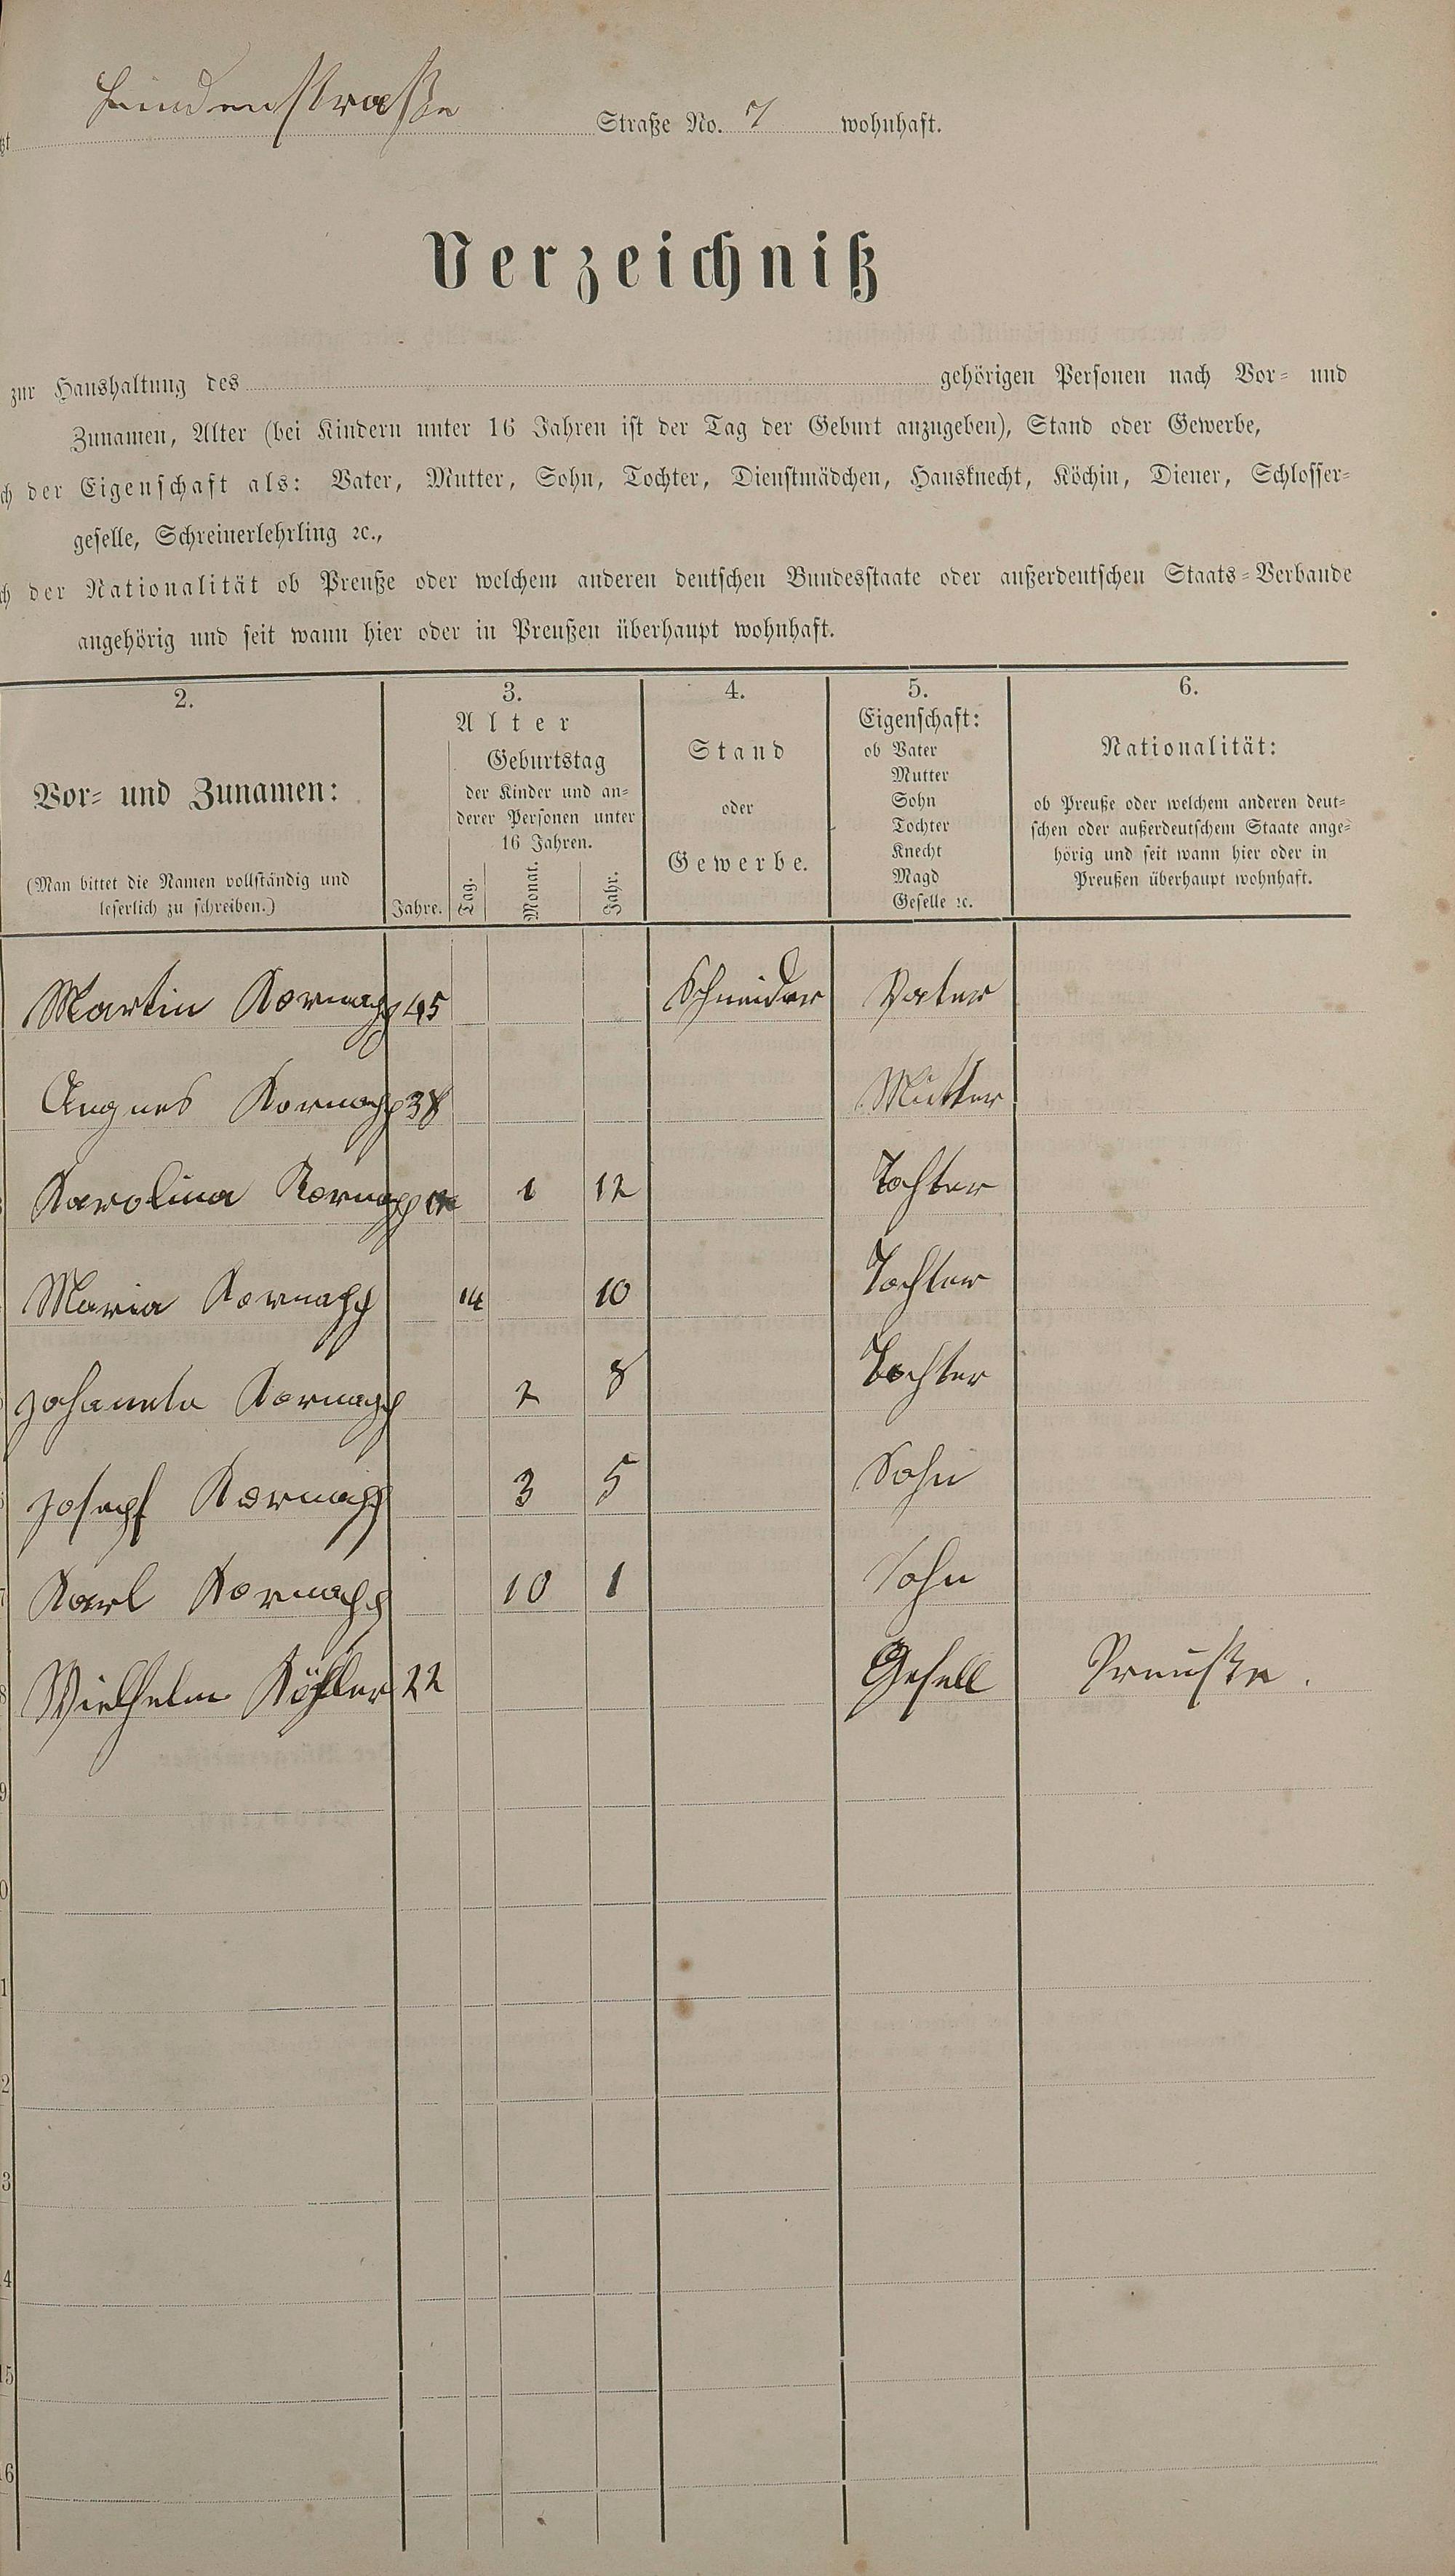 Lindenstraße Straße No. 7 wohnhaft.
Verzeichniß
zur Haushaltung des gehörigen Personen nach Vor- und
Zunamen, Alter (bei Kindern unter 16 Jahren ist der Tag der Geburt anzugeben), Stand oder Gewerbe,
der Eigenschaft als: Vater, Mutter, Sohn, Tochter, Dienstmädchen, Hausknecht, Köchin, Diener, Schlosser-
geselle, Schreinerlehrling ꝛc.,
der Nationalität ob Preuße oder welchem anderen deutschen Bundesstaate oder außerdeutschen Staats-Verbande
angehörig und seit wann hier oder in Preußen überhaupt wohnhaft.
2. 3. 4. 5. 6.
Vor- und Zunamen:
(Man bittet die Namen vollständig und
leserlich zu schreiben.)
Alter
Geburtstag
der Kinder und an-
derer Personen unter
16 Jahren.
Jahre. Tag. Monat. Jahr.
Stand
oder
Gewerbe.
Eigenschaft:
ob Vater
Mutter
Sohn
Tochter
Knecht
Magd
Geselle ꝛc.
Nationalität:
ob Preuße oder welchem anderen deut-
schen oder außerdeutschem Staate ange-
hörig und seit wann hier oder in
Preußen überhaupt wohnhaft.
Martin Kornapp 45 Schneider Vater
Angnes Kornapp 38 Mutter
Karolina Kornapp 1 12 Tochter
Maria Kornapp 14 10 Tochter
Johanneta Kornapp 2 8 Tochter
Josepf Kornapp 3 5 Sohn
Karl Kornapp 10 1 Sohn
Wielhelm Köhler 22 Gesell Preuße.
9
0
1
2
3
4
15
16